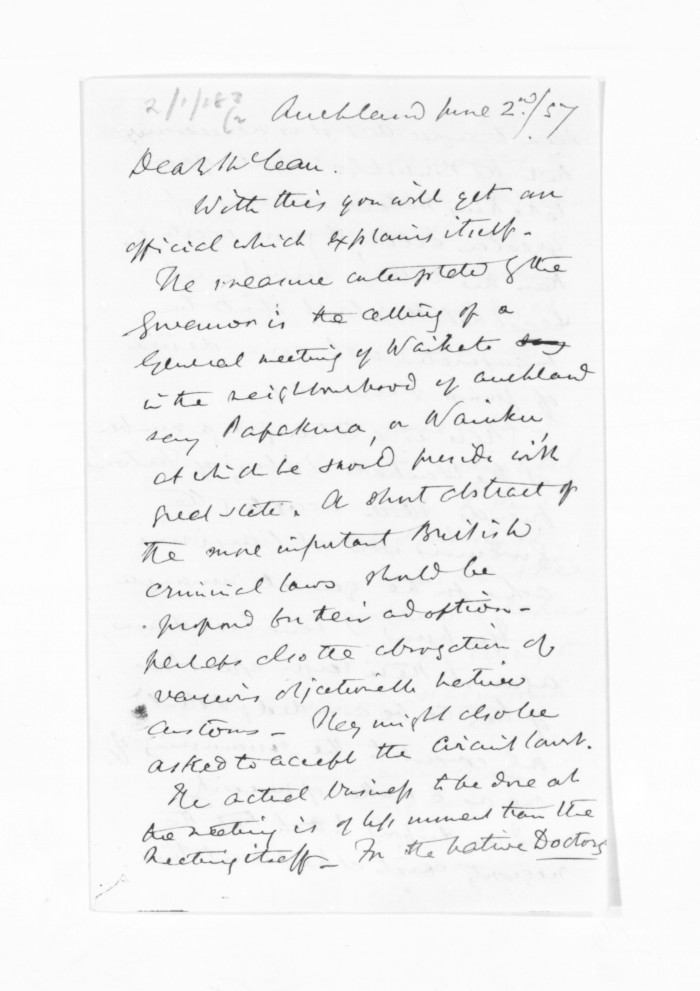 Auckland June 2nd/57
Dear McLean.
With this you will get an
official which explains itself -
The measure contemplated by the
Governor is the calling of a
General meeting of Waikato say
in the neighbourhood of Auckland
say Papakura, or Waiuku
at which he should preside with
great state. A short abstract of
the more important British
criminal laws should be
proposed for their adoption -
perhaps also the abrogation of
various objectionable native
customs - They might also be
asked to accept the Circuit Court.
The actual business to be done at
the meeting is of less moment than the
meeting itself - For the native Doctors